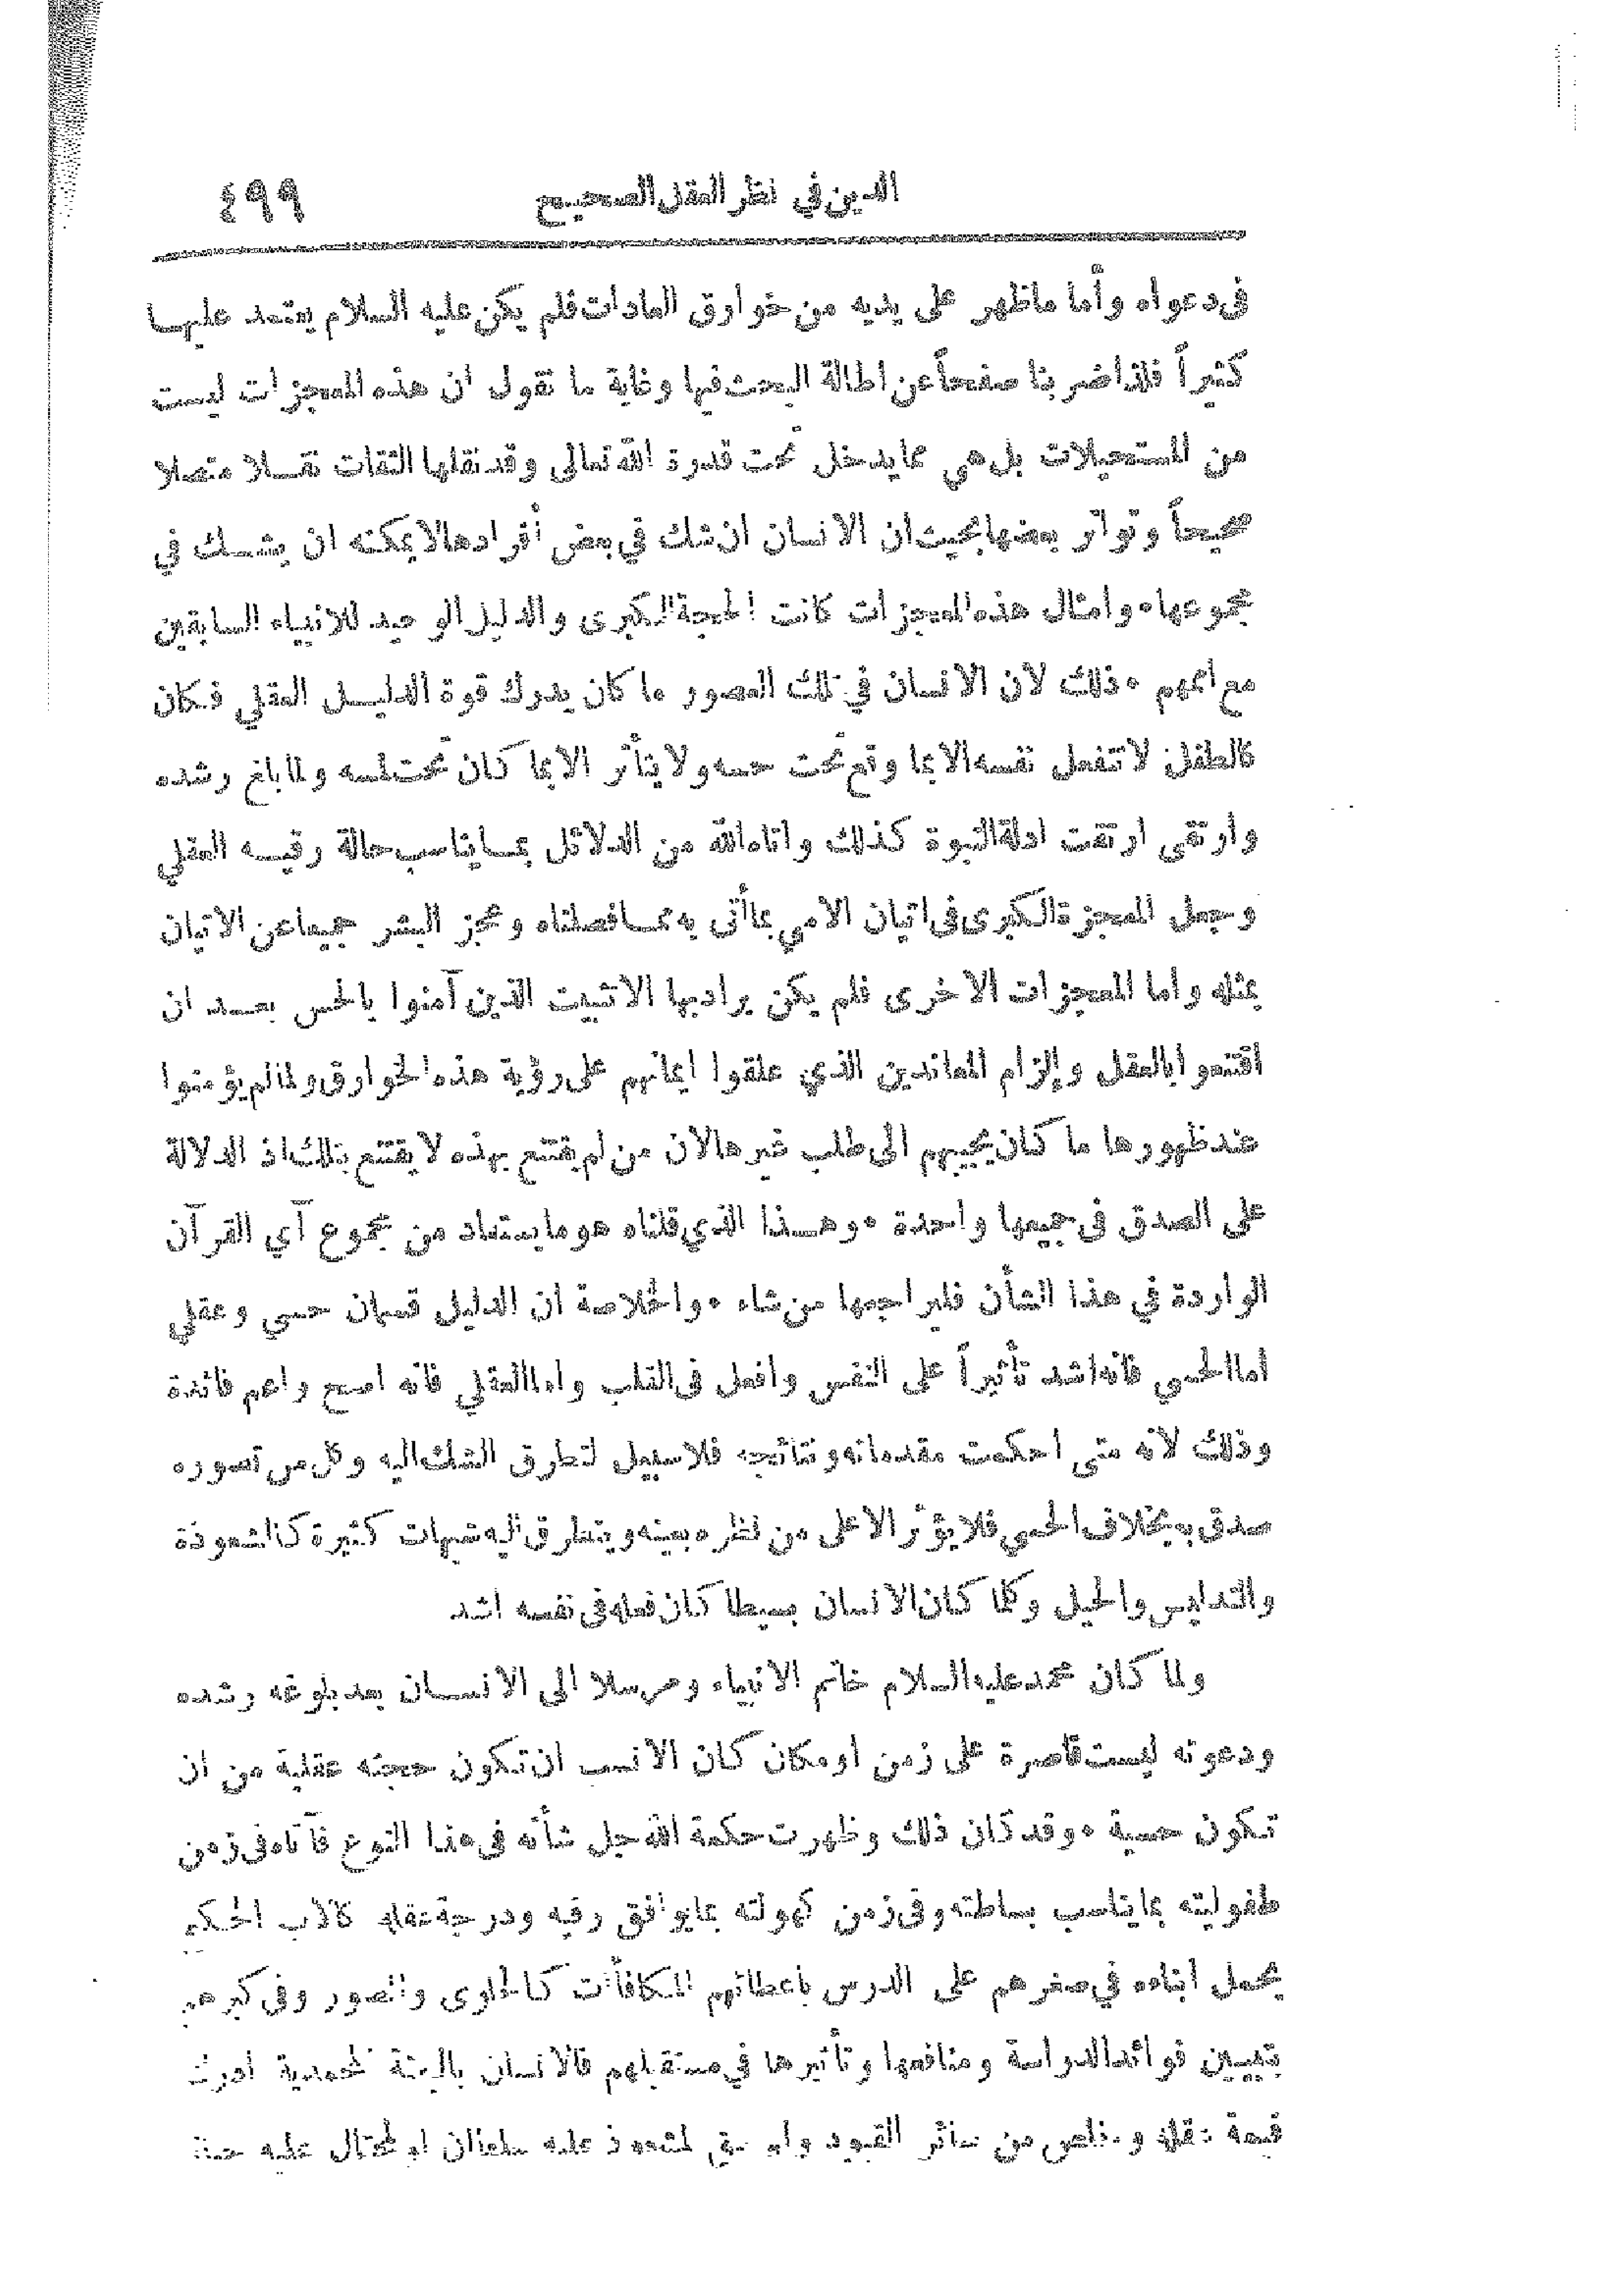 الدين في نظر العقل الصحيح ٤٩٩
فى دعواه وأما ماظهر على يديه من خوارق العادات فلم يكن عليه السلام يعتمد عليها
كثيراً فلذا ضربنا صفحاً عن اطالة البحث فيها وغاية ما نقول ان هذه المعجزات ليست
من المستحيلات بل هي مما يدخل تحت قدرة الله تعالى وقد نقلها الثقات نقلا متصلا
صحيحاً وتواتر بعضها بحيث ان الانسان ان شك في بعض أفرادها لا يمكنه ان يشك في
مجموعها ٠ وامثال هذه المعجزات كانت الحجة الكبرى والدليل الوحيد للانبياء السابقين
مع اممهم ٠ ذلك لان الانسان في تلك العصور ما كان يدرك قوة الدليل العقلي فكان
كالطفل لا تنفعل نفسه الا بما وقع تحت حسه ولا يتأثر الا بما كان تحت لمسه ولما بلغ رشده
وارتقى ارتقت ادلة النبوة كذلك واتاه الله من الدلائل بما يناسب حالة رقيه العقلي
وجعل المعجزة الكبرى فى اتيان الامي بما أتى به مما فصلناه وعجز البشر جميعا عن الاتيان
بمثله واما المعجزات الاخرى فلم يكن يراد بها الا تثبيت الذين آمنوا بالحس بعد ان
اقتنعوا بالعقل وإلزام المعاندين الذي علقوا ايمانهم على رؤية هذه الخوارق ولما لم يؤمنوا
عند ظهورها ما كان يجيبهم الى طلب غيرها لان من لم يقتنع بهذه لا يقتنع بتلك اذ الدلالة
على الصدق فى جميعها واحدة ٠ وهذا الذي قلناه هو ما يستفاد من مجموع آي القرآن
الواردة في هذا الشأن فليراجعها من شاء ٠ والخلاصة ان الدليل قسمان حسي وعقلي
اما الحسي فانه اشد تأثيراً على النفس وافعل فى القلب واما العقلي فانه اصح واعم فائدة
وذلك لانه متى احكمت مقدماته ونتائجه فلا سبيل لتطرق الشك اليه وكل من تصوره
صدق به بخلاف الحسي فلا يؤثر الا على من نظره بعينه ويتطرق اليه شبهات كثيرة كالشعوذة
والتدليس والحيل وكلما كان الانسان بسيطا كان فعله فى نفسه اشد
ولما كان محمد عليه السلام خاتم الانبياء ومرسلا الى الانسان بعد بلوغه رشده
ودعوته ليست قاصرة على زمن او مكان كان الانسب ان تكون حجته عقلية من ان
تكون حسية ٠ وقد كان ذلك وظهرت حكمة الله جل شأنه فى هذا النوع فآتاه فى زمن
طفوليته بما يناسب بساطته وفى زمن كهولته بما يوافق رقيه ودرجة عقله كالاب الحكيم
يحمل ابناءه في صغرهم على الدرس باعطائهم المكافآت كالحلوى والصور وفى كبرهم
بتبيين فوائد الدراسة ومنافعها وتأثيرها في مستقبلهم فالانسان بالبعثة المحمدية ادرك
قيمة عقله وخلص من سائر القيود ولم يبق لمشعوذ عليه سلطان او لمحتال عليه